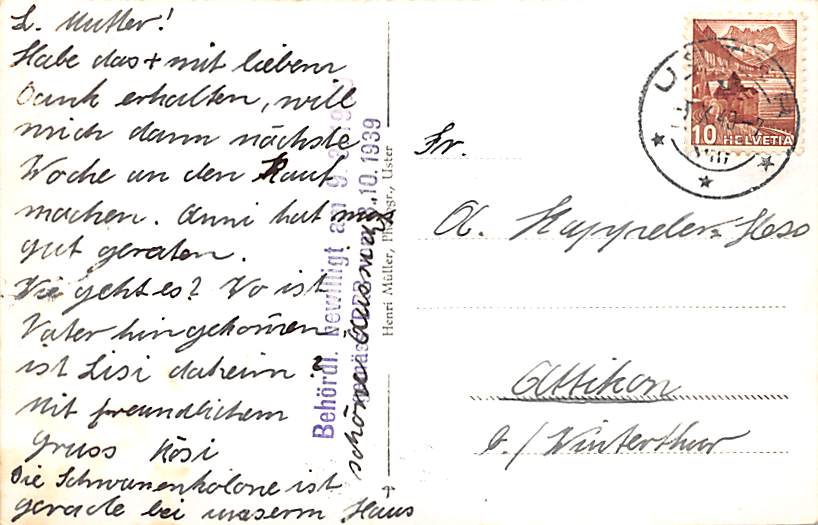 L. Mutter!
Habe das + mit liebem
Dank erhalten, will
mich dann nächste
Woche an den Kauf
machen. Anni hat man
gut geraten.
Wie geht es? Wo ist
Vater hingekommen
ist Lisi daheim?
Mit freundlichem
Gruss Rösi
Die Schwanenkolone ist
gerade bei unserm Haus
schöner
Behördl. bewilligt am 9.
10. 1939
Henri Müller, Photogr., Uster
USTER
10 HELVETIA
Fr.
A. Kappeler-Hess
Attikon
b./Winterthur